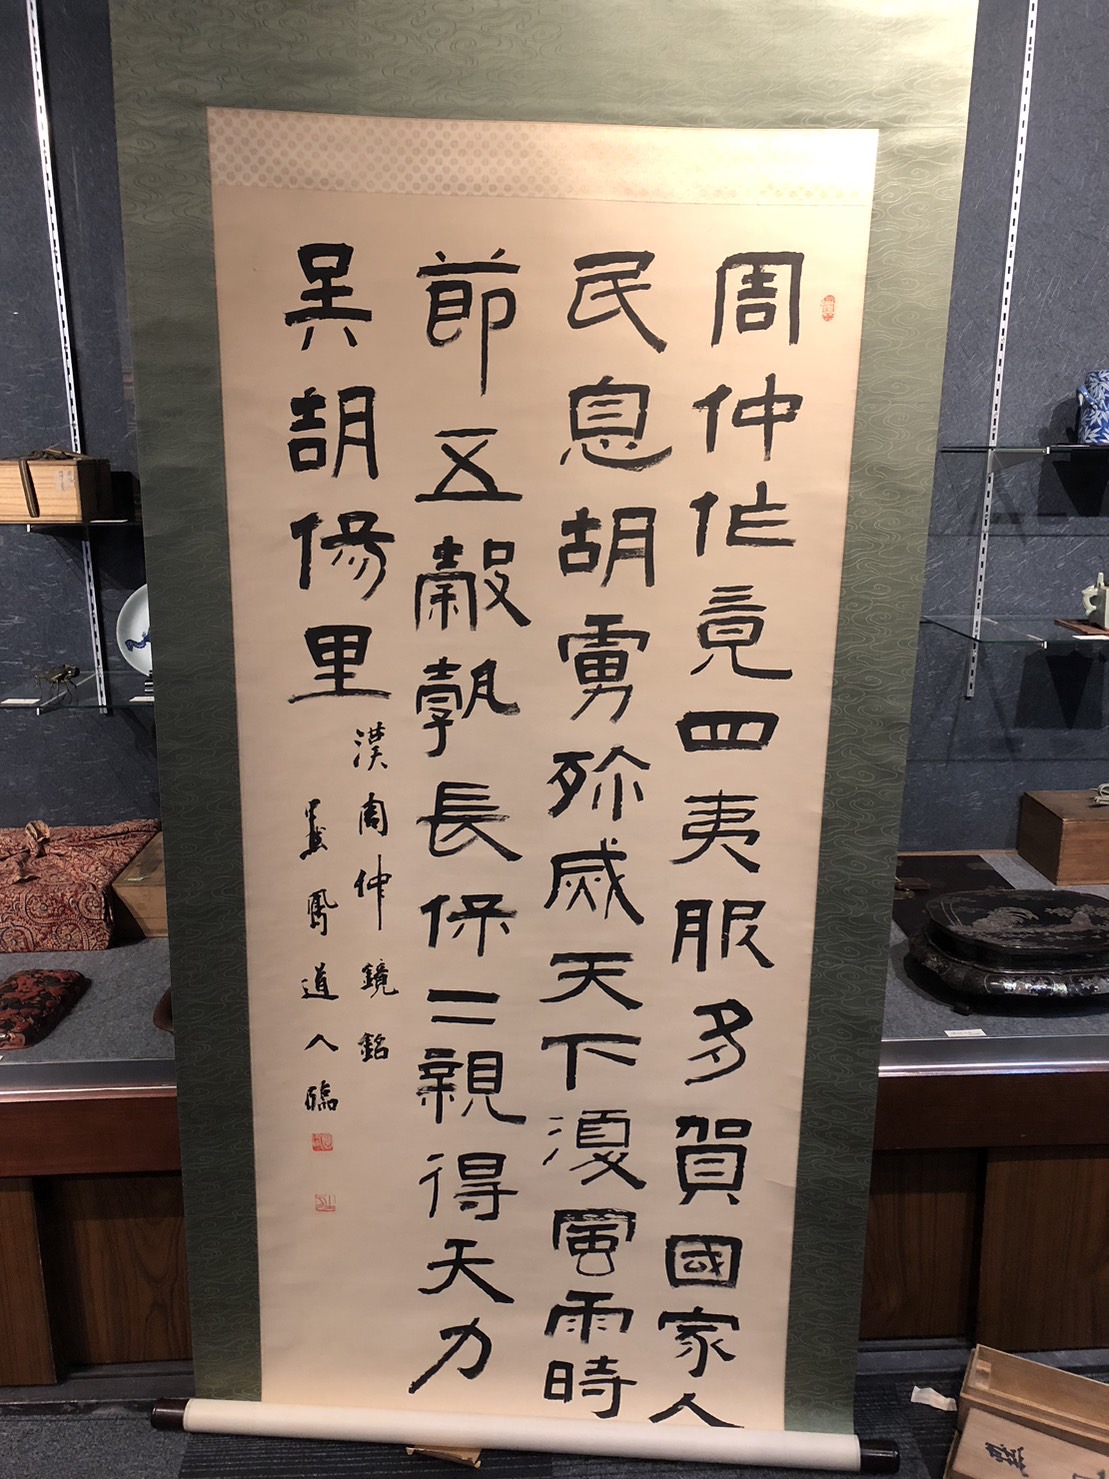 周仲作竟四夷服多賀國家人
民息胡虜殄威天下復風雨時
節五穀孰長保二親得天力
吴胡傷里
漢周仲鏡銘
鳳道人臨